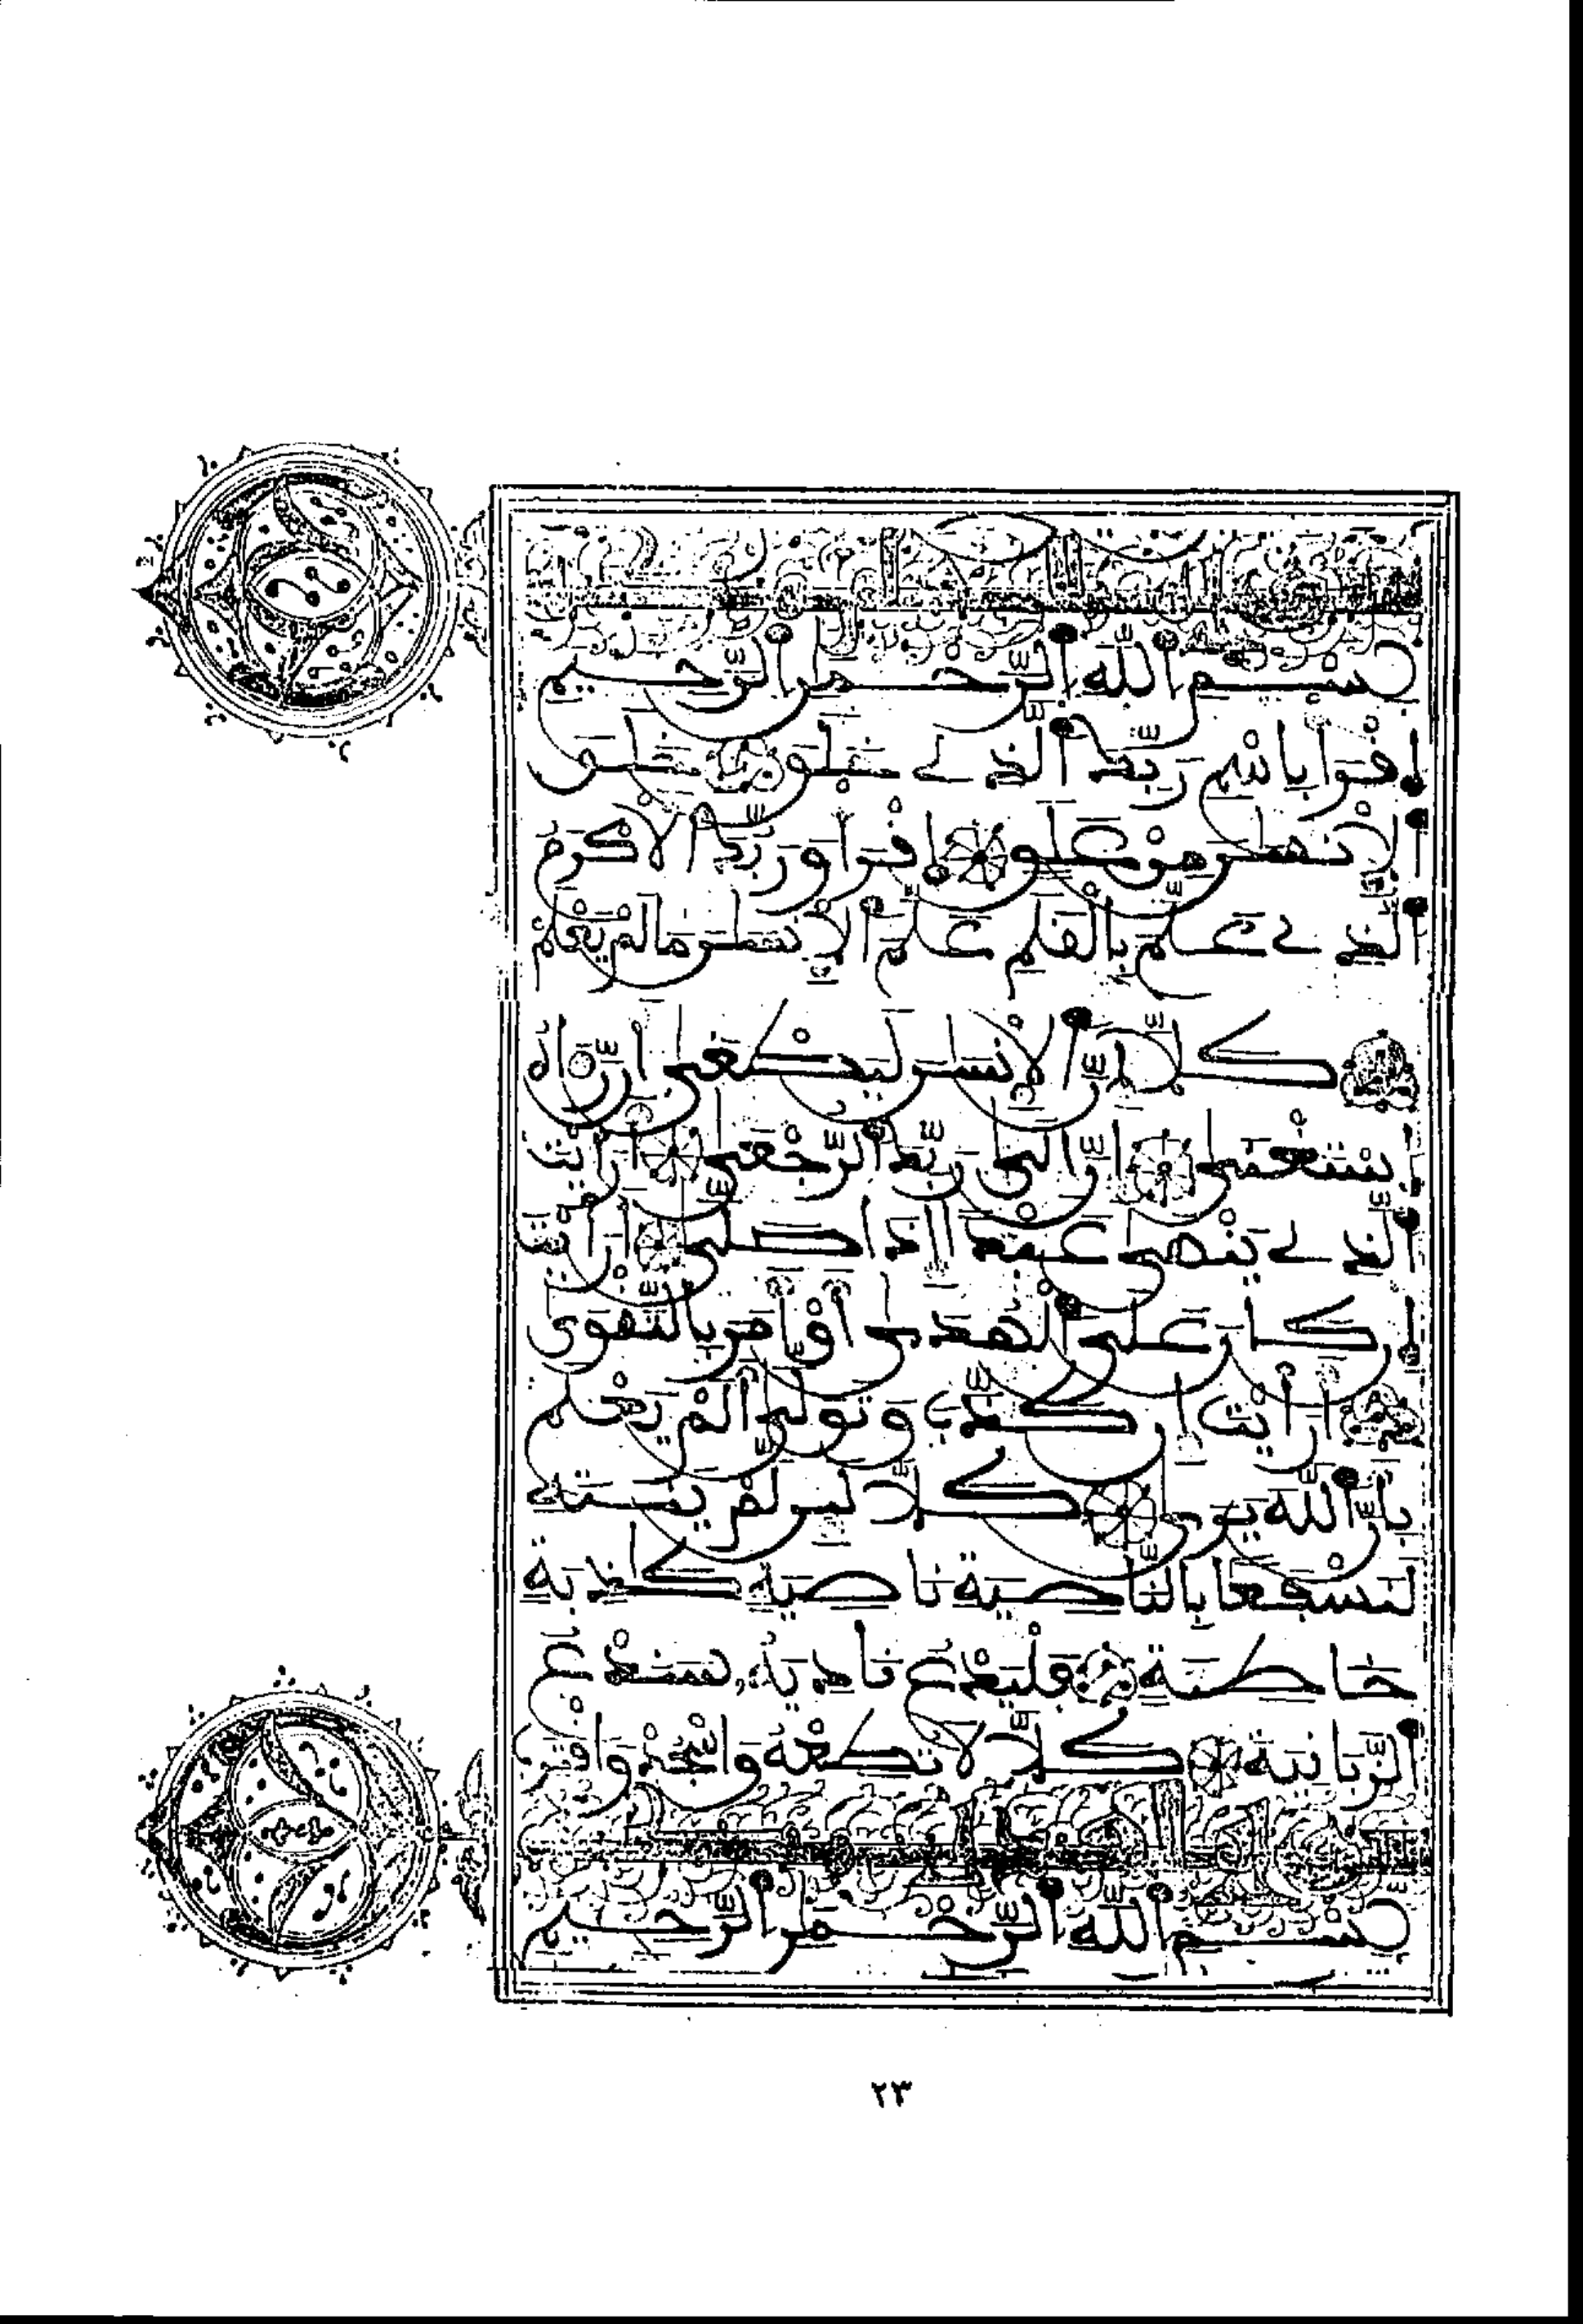 بسم الله الرحمن الرحيم
إقرأ باسم ربك الذي خلق خلق
الإنسن من علق إقرأ وربك الأكرم
الذي علم بالقلم علم الإنسن ما لم يعلم
كلا إن الإنسن ليطغى أن رءاه
استغنى إن إلى ربك الرجعى أرايت
الذي ينهى عبدا إذا صلى أرايت
إن كان على الهدى أو امر بالتقوى
أرايت إن كذب وتولى ألم يعلم
بأن الله يرى كلا لين لم ينته
لنسفعا بالناصية ناصية كاذبة
خاطئة فليدع ناديه سندع
الزبانية كلا لا تطعه واسجد واقترب
بسم الله الرحمن الرحيم
٢٣